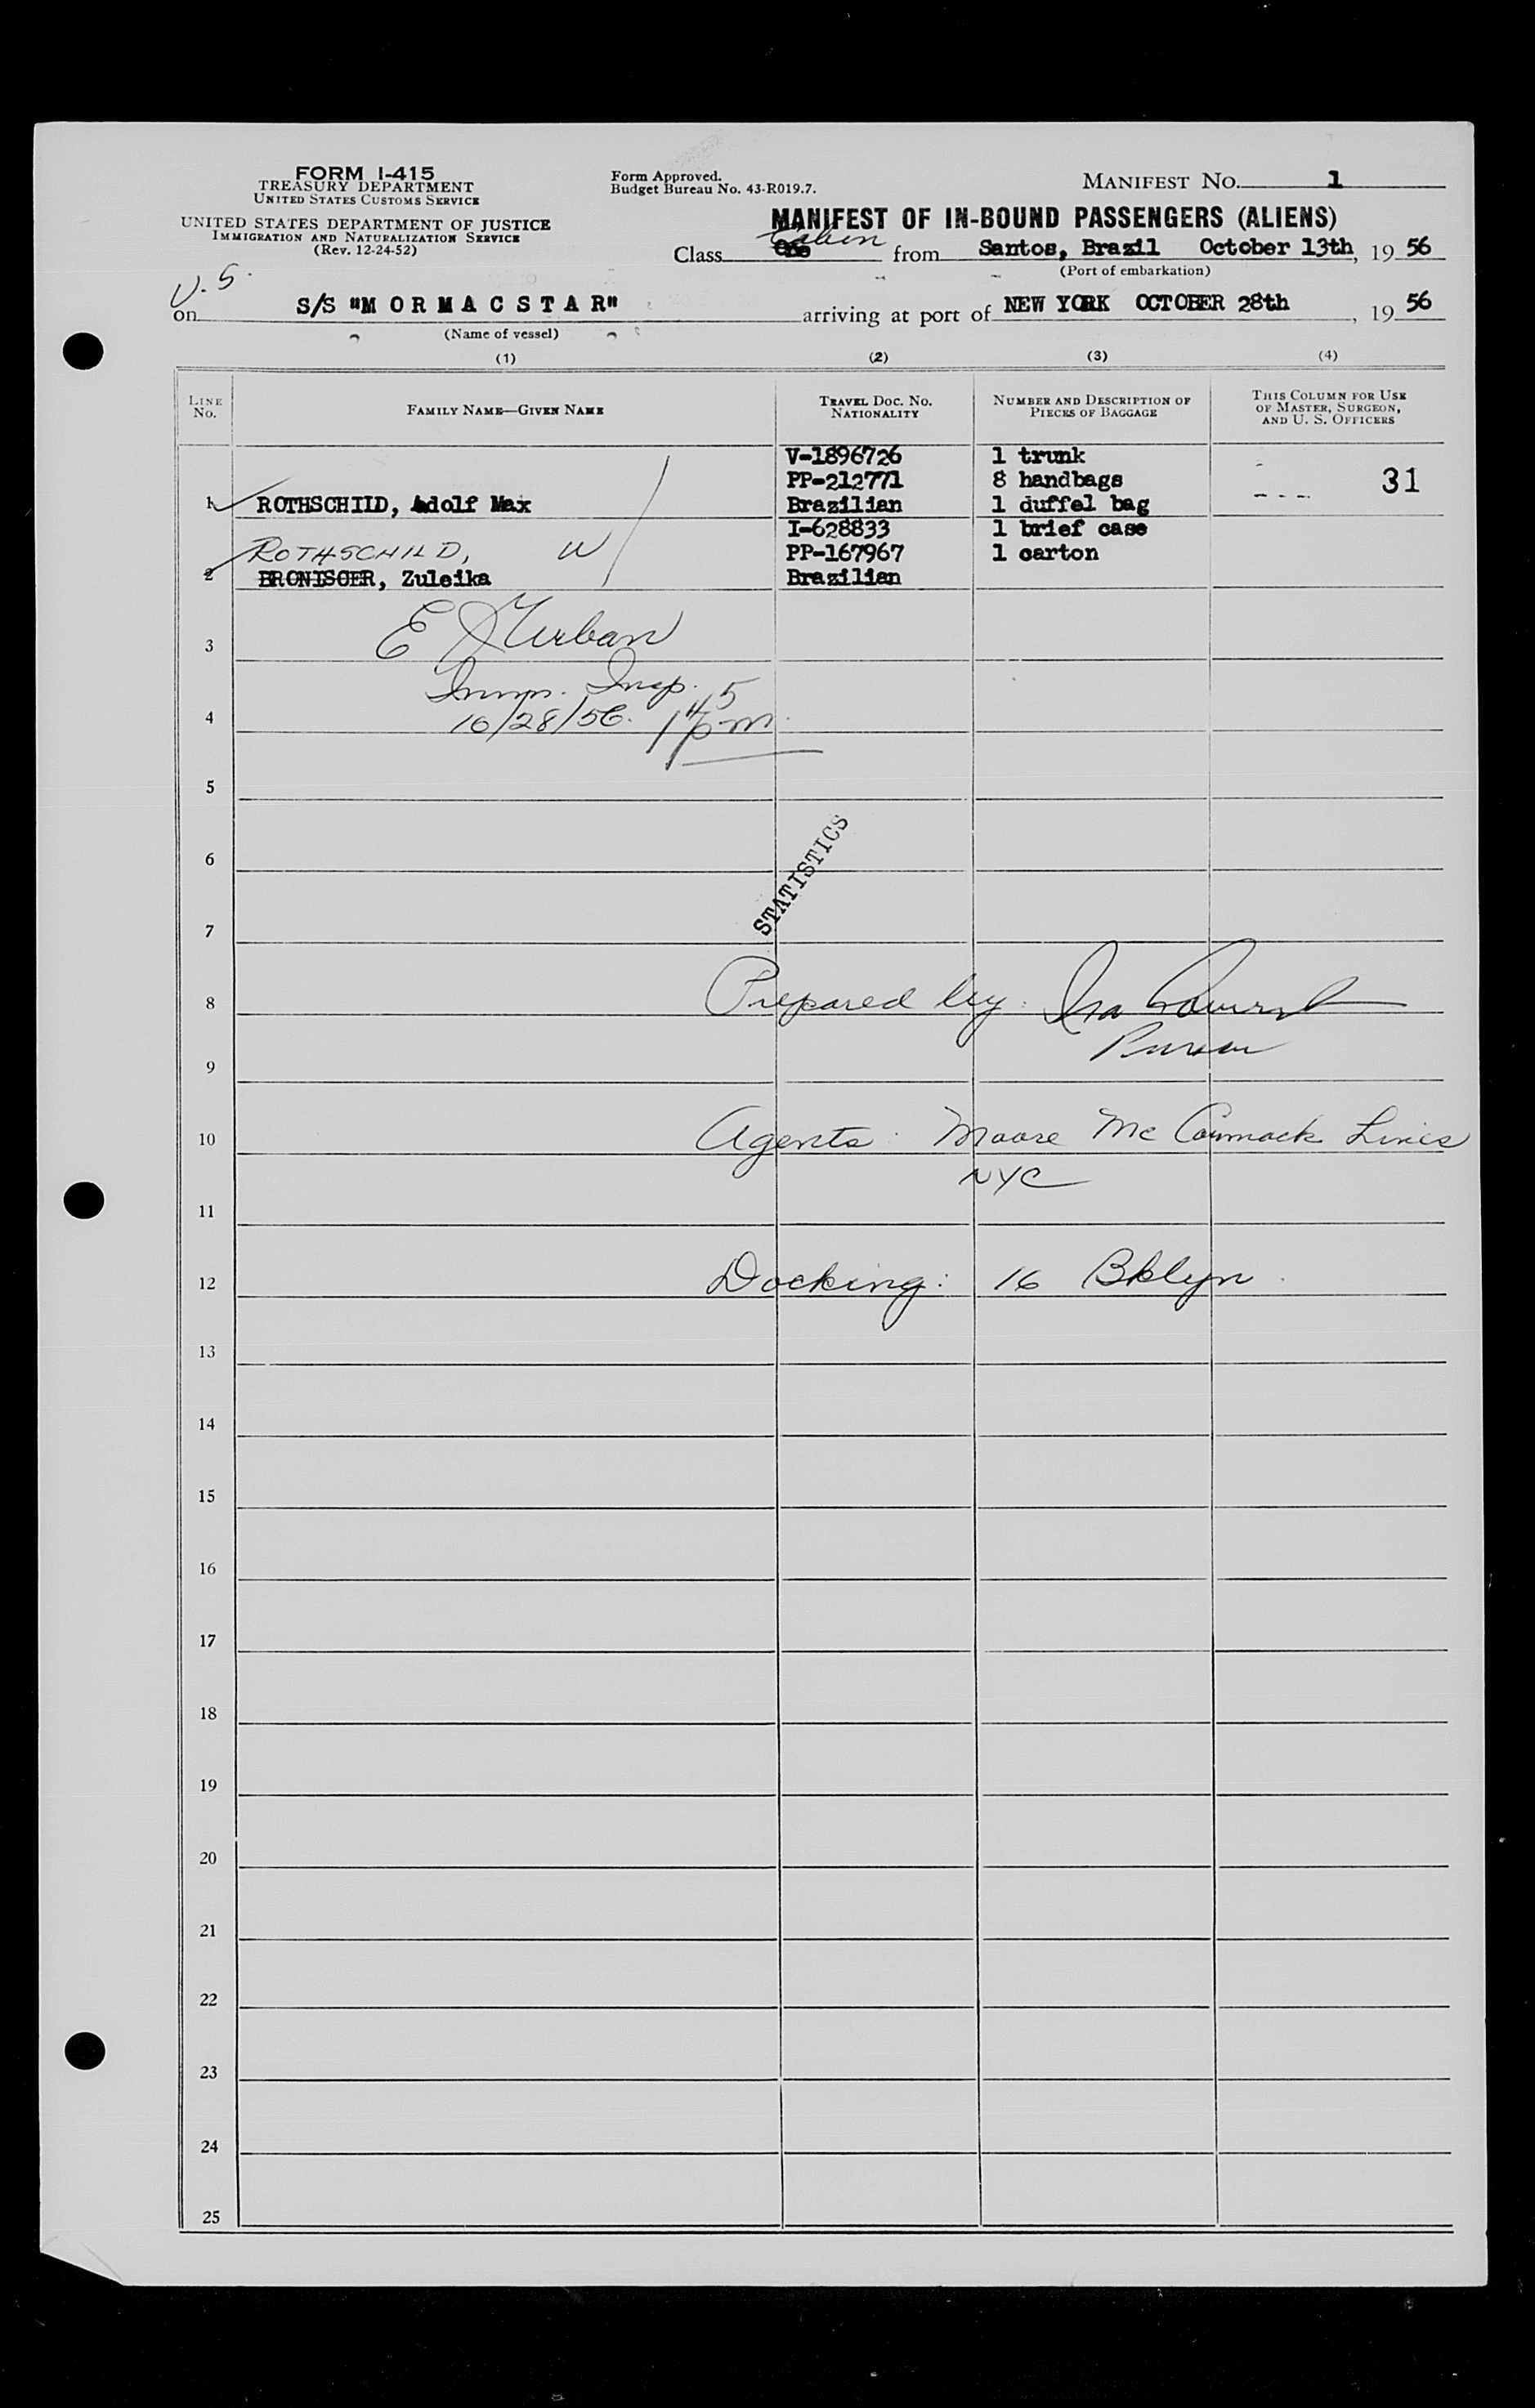 FORM I-415
TREASURY DEPARTMENT
UNITED STATES CUSTOMS SERVICE
UNITED STATES DEPARTMENT OF JUSTICE
IMMIGRATION AND NATURALIZATION SERVICE
(Rev. 12-24-52)
Form Approved.
Budget Bureau No. 43-R019.7.
MANIFEST NO. 1
MANIFEST OF IN-BOUND PASSENGERS (ALIENS)
Cabin
Class One from Santos, Brazil October 13th, 19 56
(Port of embarkation)
U.S.
on S/S "M O R M A C S T A R" arriving at port of NEW YORK OCTOBER 28th, 19 56
(Name of vessel)
(1) (2) (3) (4)
LINE NO.
FAMILY NAME—GIVEN NAME
TRAVEL DOC. NO. NATIONALITY
NUMBER AND DESCRIPTION OF PIECES OF BAGGAGE
THIS COLUMN FOR USE OF MASTER, SURGEON, AND U. S. OFFICERS
V-1896726 1 trunk
PP-212771 8 handbags 31
1 ROTHSCHILD, Adolf Max Brazilian 1 duffel bag
I-628833 1 brief case
ROTHSCHILD, W PP-167967 1 carton
2 BRONISCER, Zuleika Brazilian
E Urban
3
Imm. Insp.
4 10/28/56. 1 45 pm
5
6
STATISTICS
7
8 Prepared by: Ira
Purser
9
10 Agents: Moore Mc Cormack Lines
NYC
11
12 Docking: 16 Bklyn.
13
14
15
16
17
18
19
20
21
22
23
24
25